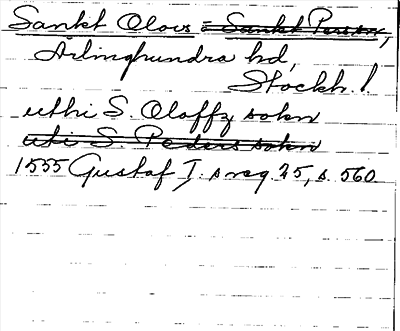 Sankt Olovs = Sankt Persson,
Ärlinghundra hd,
Stockh. l.
uthi S. Oloffz sokn
uti S. Peders sokn
1555 Gustaf I:s reg. 25, s. 560